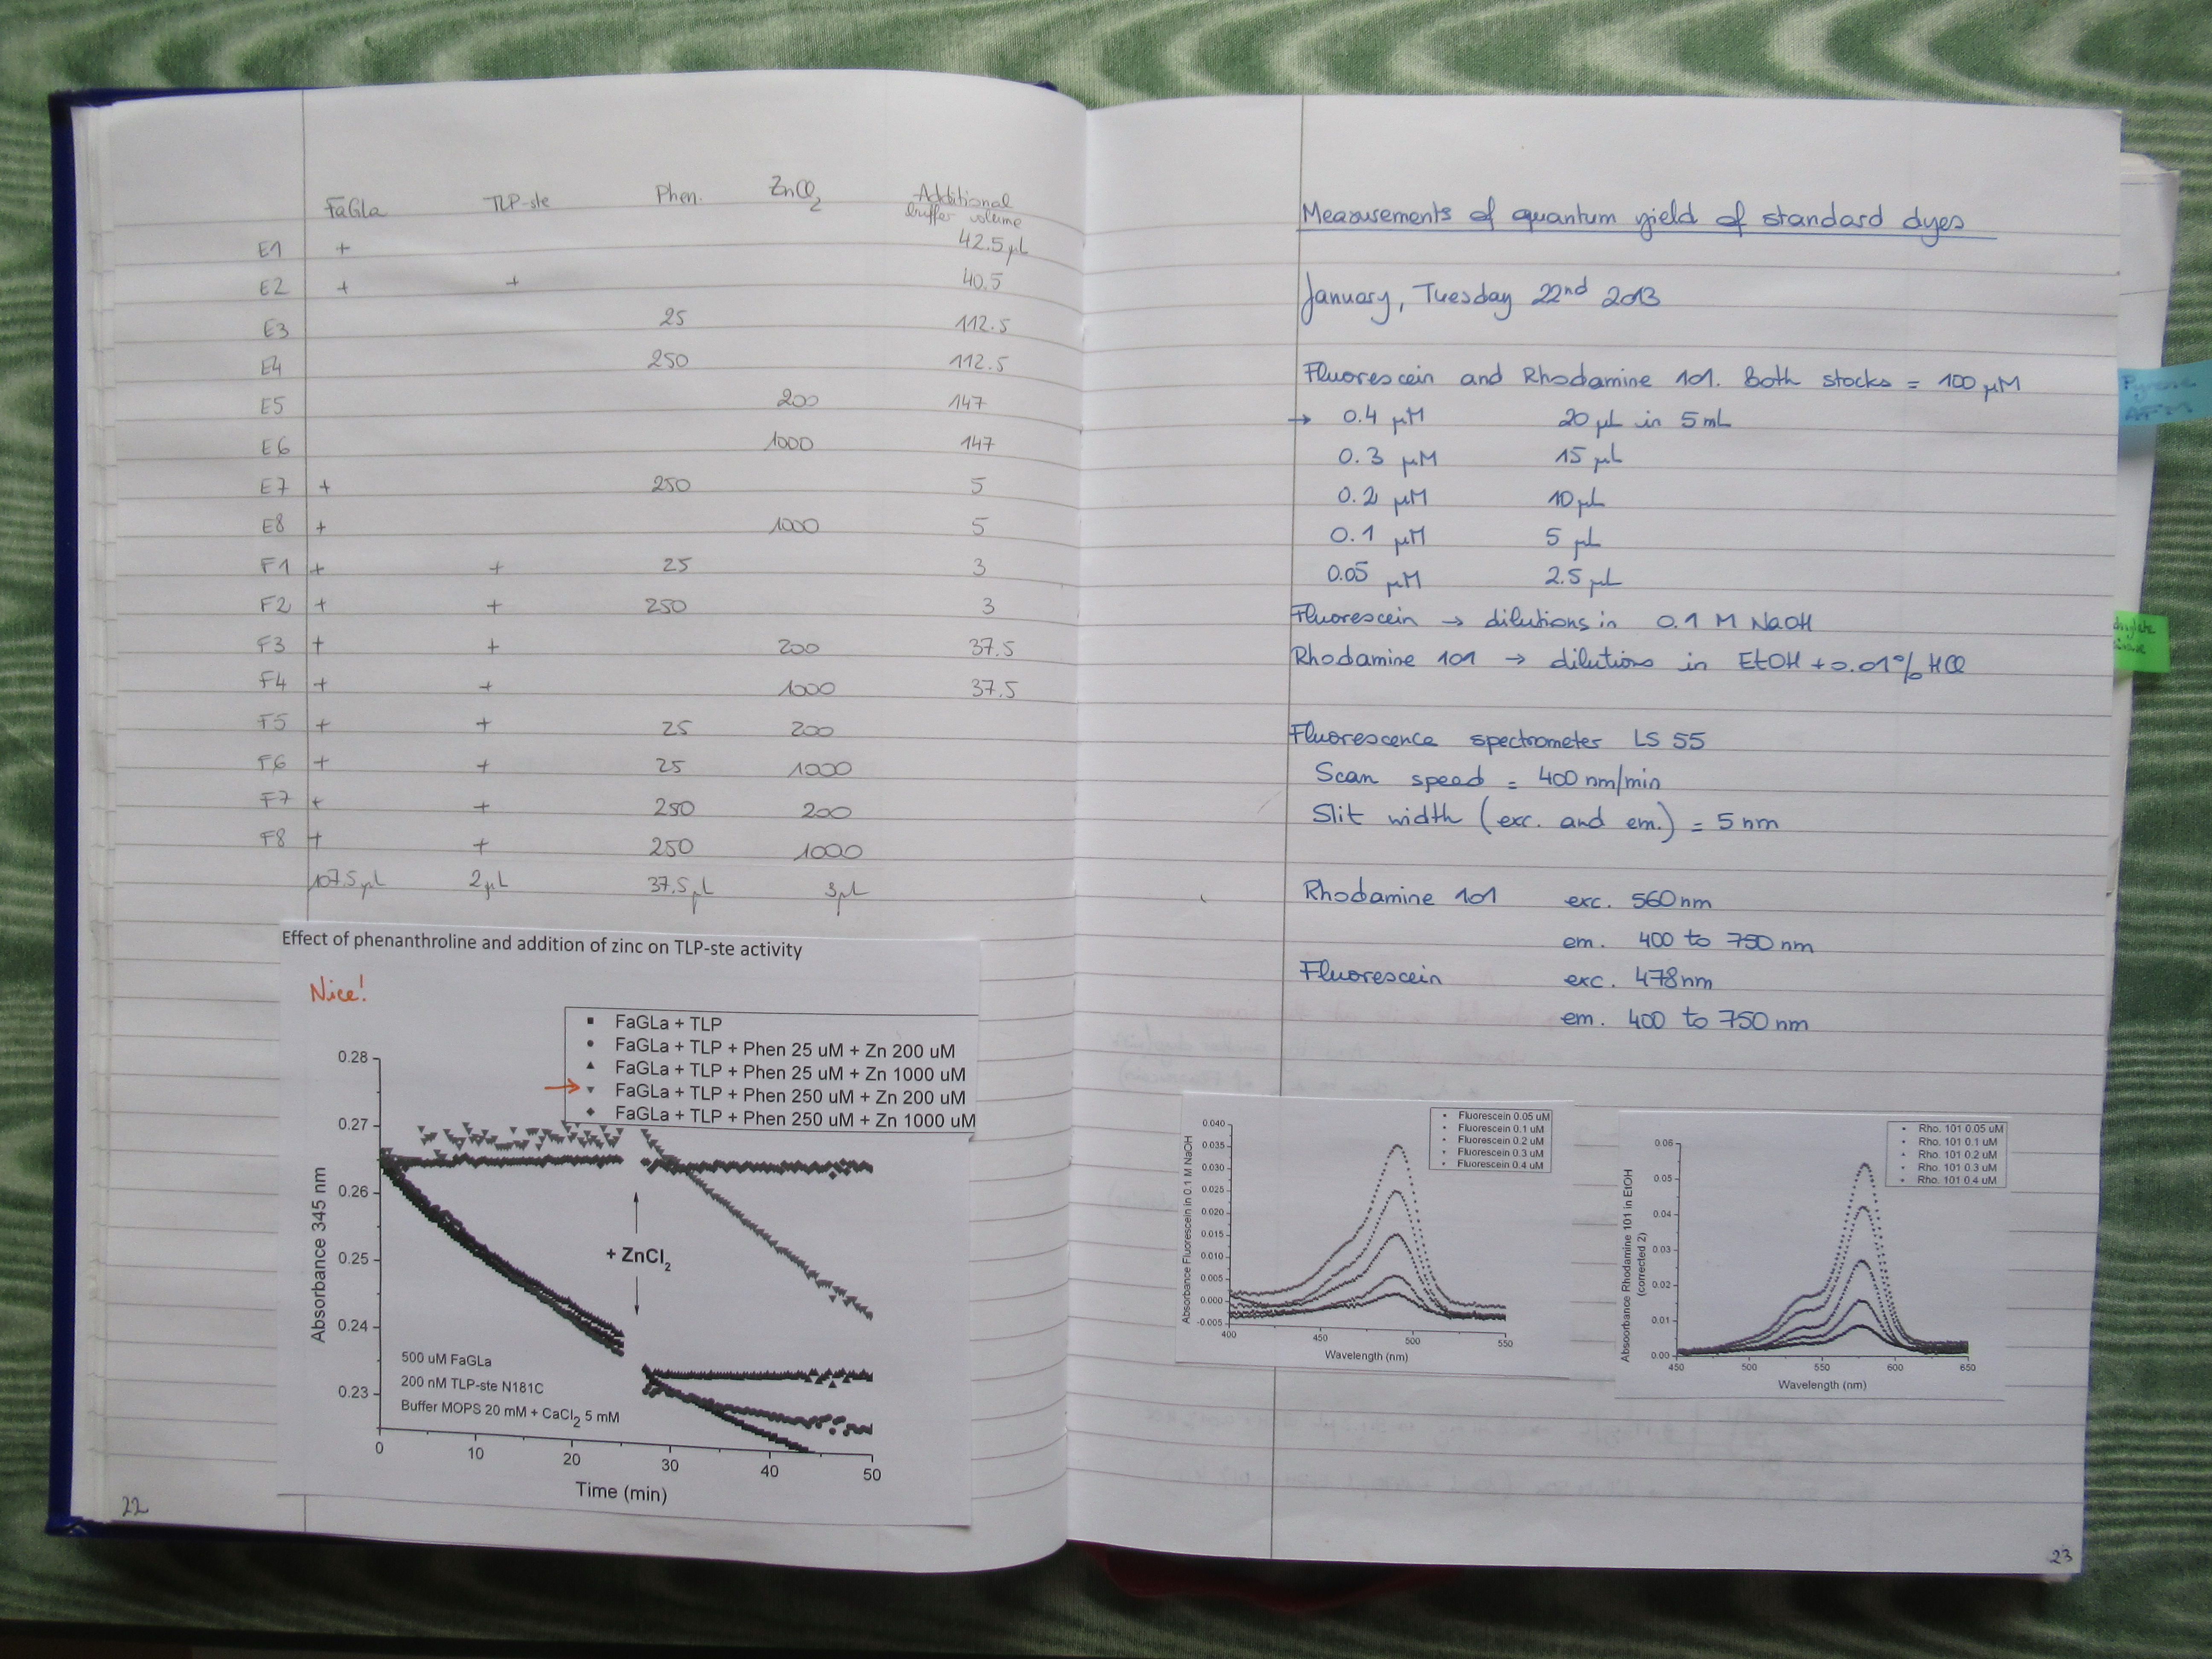 FaGLa TLP-ste Phen. ZnCl2 Additional buffer volume
E1 + 42.5 µL
E2 + + 40.5
E3 25 112.5
E4 250 112.5
E5 200 147
E6 1000 147
E7 + 250 5
E8 + 1000 5
F1 + + 25 3
F2 + + 250 3
F3 + + 200 37.5
F4 + + 1000 37.5
F5 + + 25 200
F6 + + 25 1000
F7 + + 250 200
F8 + + 250 1000
107.5 µL 2 µL 37.5 µL 3 µL
Effect of phenanthroline and addition of zinc on TLP-ste activity
Nice!
FaGLa + TLP
FaGLa + TLP + Phen 25 uM + Zn 200 uM
FaGLa + TLP + Phen 25 uM + Zn 1000 uM
→ FaGLa + TLP + Phen 250 uM + Zn 200 uM
FaGLa + TLP + Phen 250 uM + Zn 1000 uM
Absorbance 345 nm
0.28
0.27
0.26
0.25
0.24
0.23
+ ZnCl2
500 uM FaGLa
200 nM TLP-ste N181C
Buffer MOPS 20 mM + CaCl2 5 mM
0 10 20 30 40 50
Time (min)
22
Measurements of quantum yield of standard dyes
January, Tuesday 22nd 2013
Fluorescein and Rhodamine 101. Both stocks = 100 µM
→ 0.4 µM 20 µL in 5 mL
0.3 µM 15 µL
0.2 µM 10 µL
0.1 µM 5 µL
0.05 µM 2.5 µL
Fluorescein → dilutions in 0.1 M NaOH
Rhodamine 101 → dilutions in EtOH + 0.01% HCl
Fluorescence spectrometer LS 55
Scan speed = 400 nm/min
Slit width (exc. and em.) = 5 nm
Rhodamine 101 exc. 560 nm
em. 400 to 750 nm
Fluorescein exc. 478 nm
em. 400 to 750 nm
Fluorescein 0.05 uM
Fluorescein 0.1 uM
Fluorescein 0.2 uM
Fluorescein 0.3 uM
Fluorescein 0.4 uM
Absorbance Fluorescein in 0.1 M NaOH
0.040
0.035
0.030
0.025
0.020
0.015
0.010
0.005
0.000
-0.005
400 450 500 550
Wavelength (nm)
Rho. 101 0.05 uM
Rho. 101 0.1 uM
Rho. 101 0.2 uM
Rho. 101 0.3 uM
Rho. 101 0.4 uM
Absoorbance Rhodamine 101 in EtOH
(corrected 2)
0.06
0.05
0.04
0.03
0.02
0.01
0.00
450 500 550 600 650
Wavelength (nm)
23